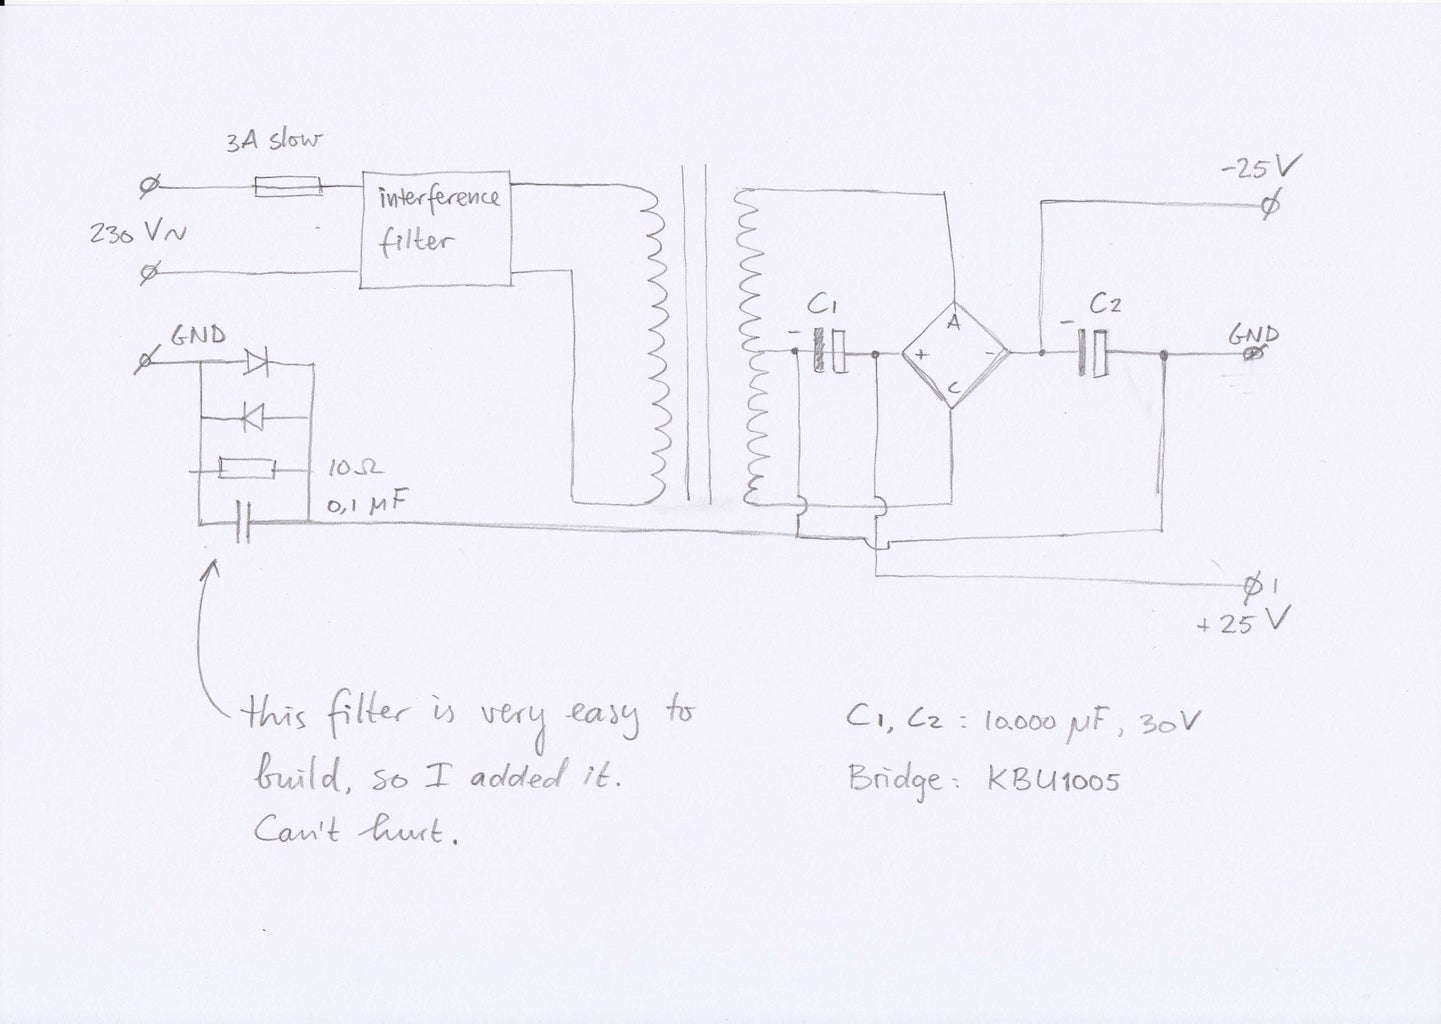 3A slow
-25V
interference
filter
230 V~
C1
C2
GND
GND
A
+
-
C
-
-
10Ω
0,1 µF
1
+25 V
this filter is very easy to
build, so I added it.
Can't hurt.
C1, C2 : 10.000 µF, 30V
Bridge: KBU1005